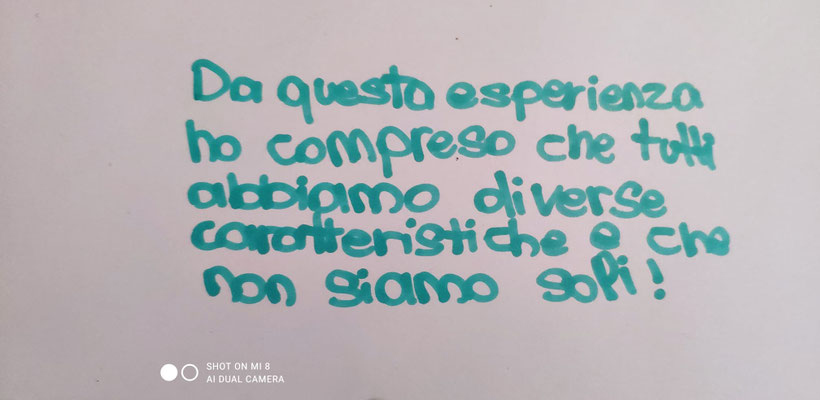 Da questa esperienza
ho compreso che tutti
abbiamo diverse
caratteristiche e che
non siamo soli!
SHOT ON MI 8
AI DUAL CAMERA